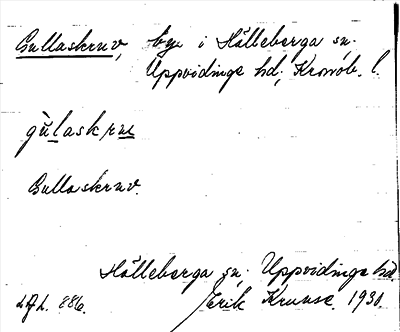 Gullaskruv, by i Hälleberga sn.
Uppvidinge hd, Kronob. l.
gùlaskruv
Gullaskruv.
Hälleberga sn. Uppvidinge hd.
886. Erik Kruuse. 1930.